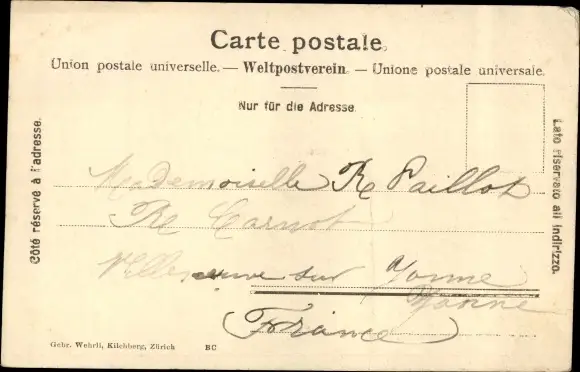 Carte postale.
Union postale universelle. — Weltpostverein. — Unione postale universale.
Nur für die Adresse.
Côté réservé à l'adresse.
Lato riservato all indirizzo.
Mademoiselle R Paillot
Re Carnot
Villeneuve sur Yonne
Yonne
(France)
Gebr. Wehrli, Kilchberg, Zürich BC